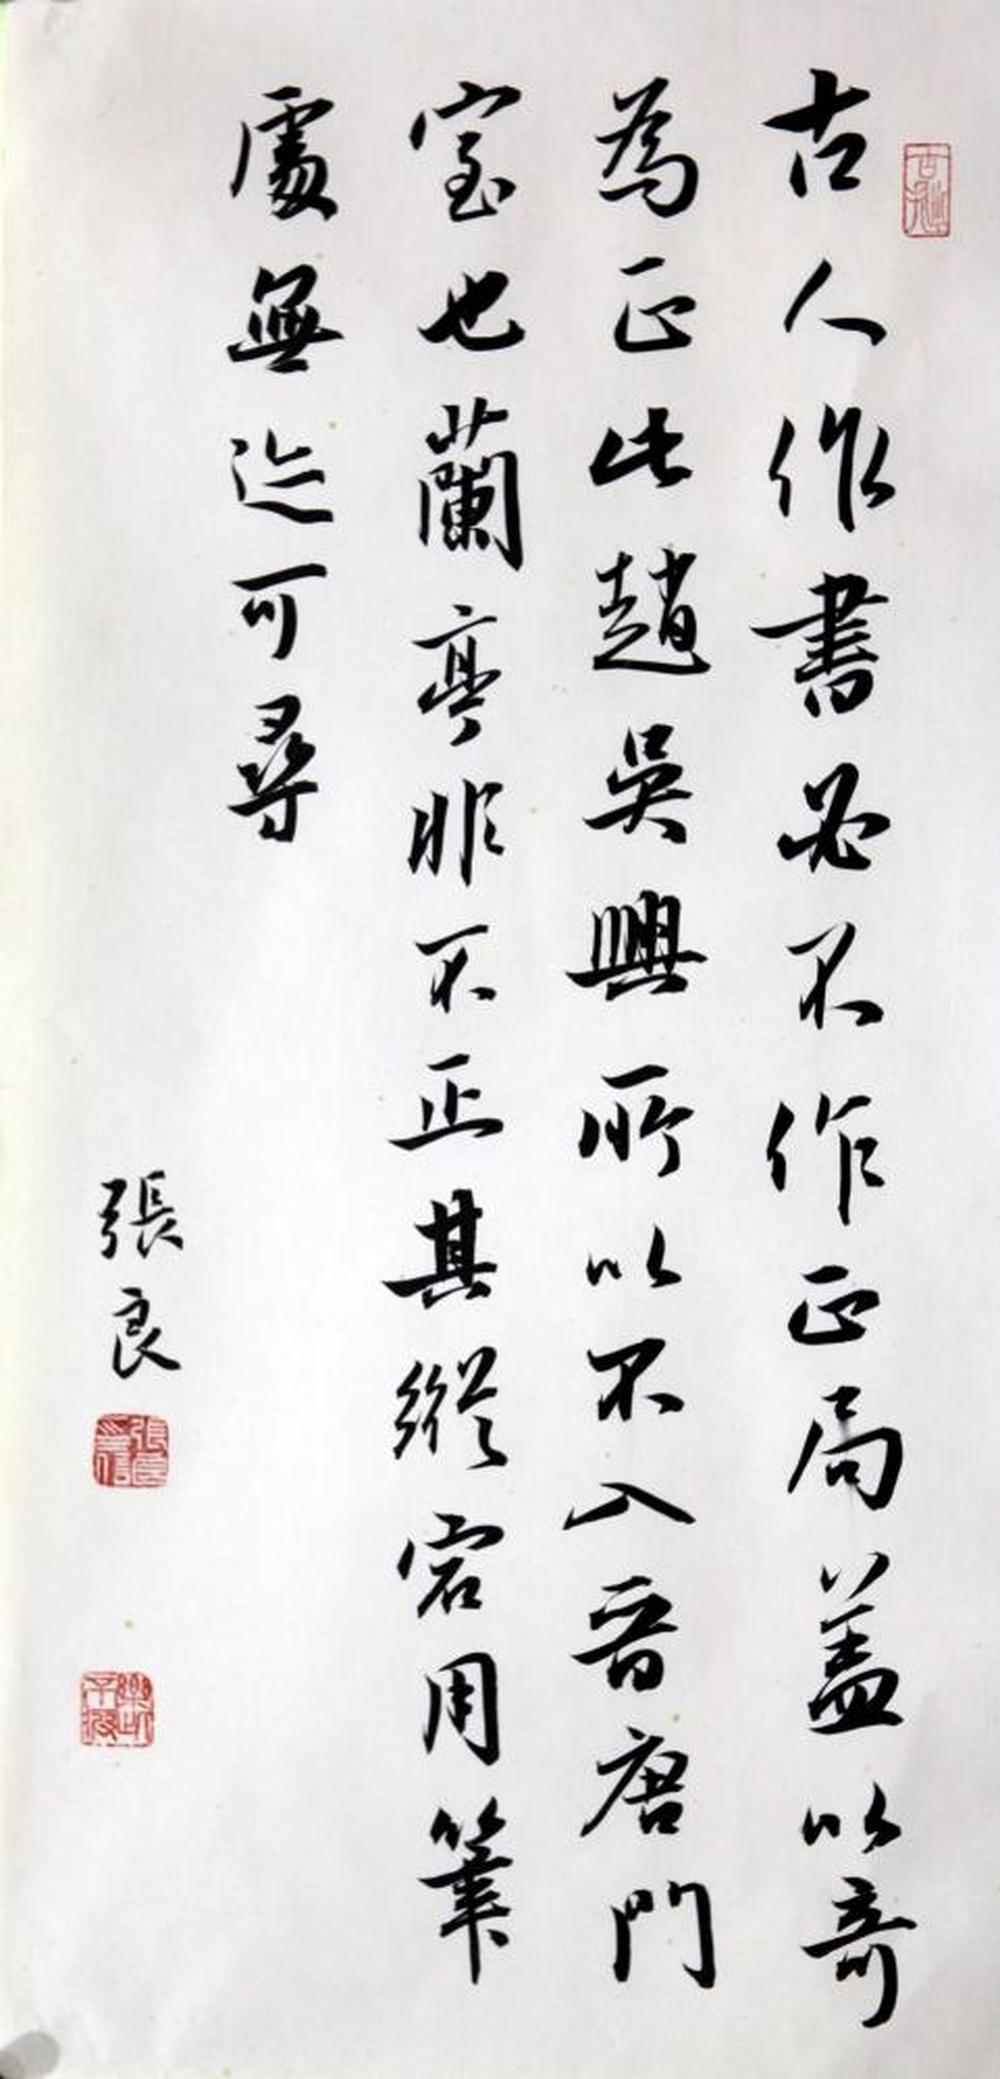 古人作書必不作正局蓋以奇
為正此趙吳興所以不入晉唐門
室也蘭亭非不正其縱宕用筆
處無迹可尋
張良